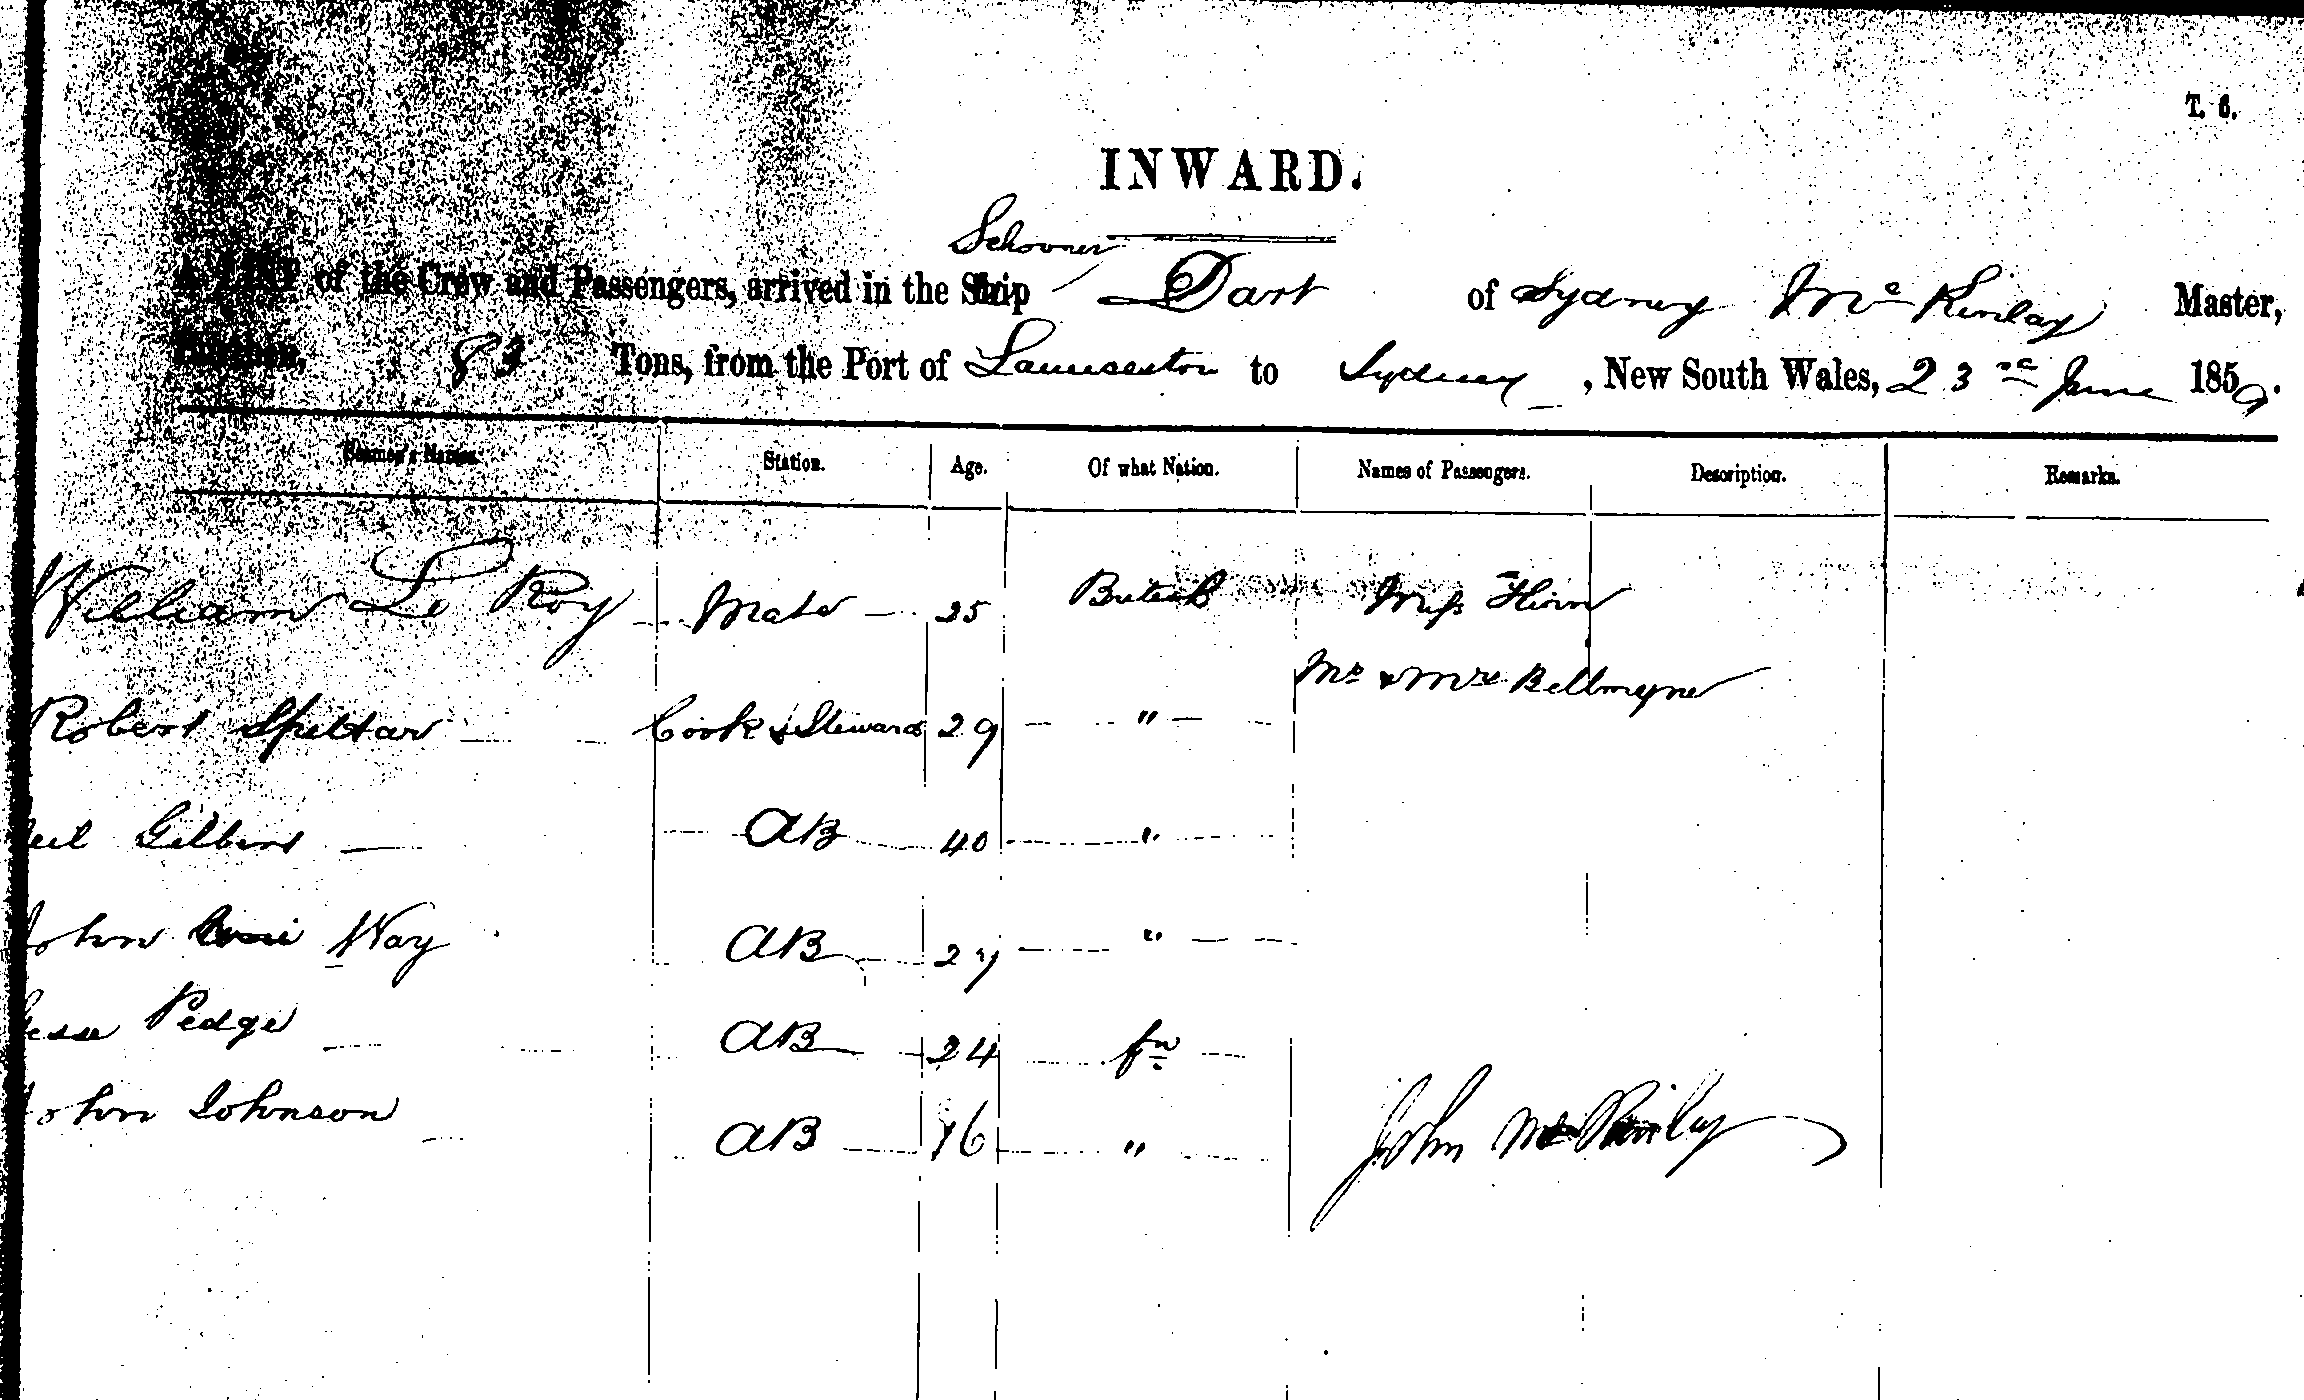 T. 6.
INWARD.
Schooner
A LIST of the Crew and Passengers, arrived in the Ship Dart of Sydney McKinlay Master,
Burthen, 83 Tons, from the Port of Launceston to Sydney, New South Wales, 23rd June 1859.
Seamen's Names. Station. Age. Of what Nation. Names of Passengers. Description. Remarks.
William Le Roy Mate 25 British Miss Horn
Mr & Mrs Bellmyne
Robert Spettar Cook & Steward 29 "
eil Gilbert AB 40 "
John Way AB 27 "
Jesse Pedge AB 24 fn
John Johnson AB 16 "
John McKinlay